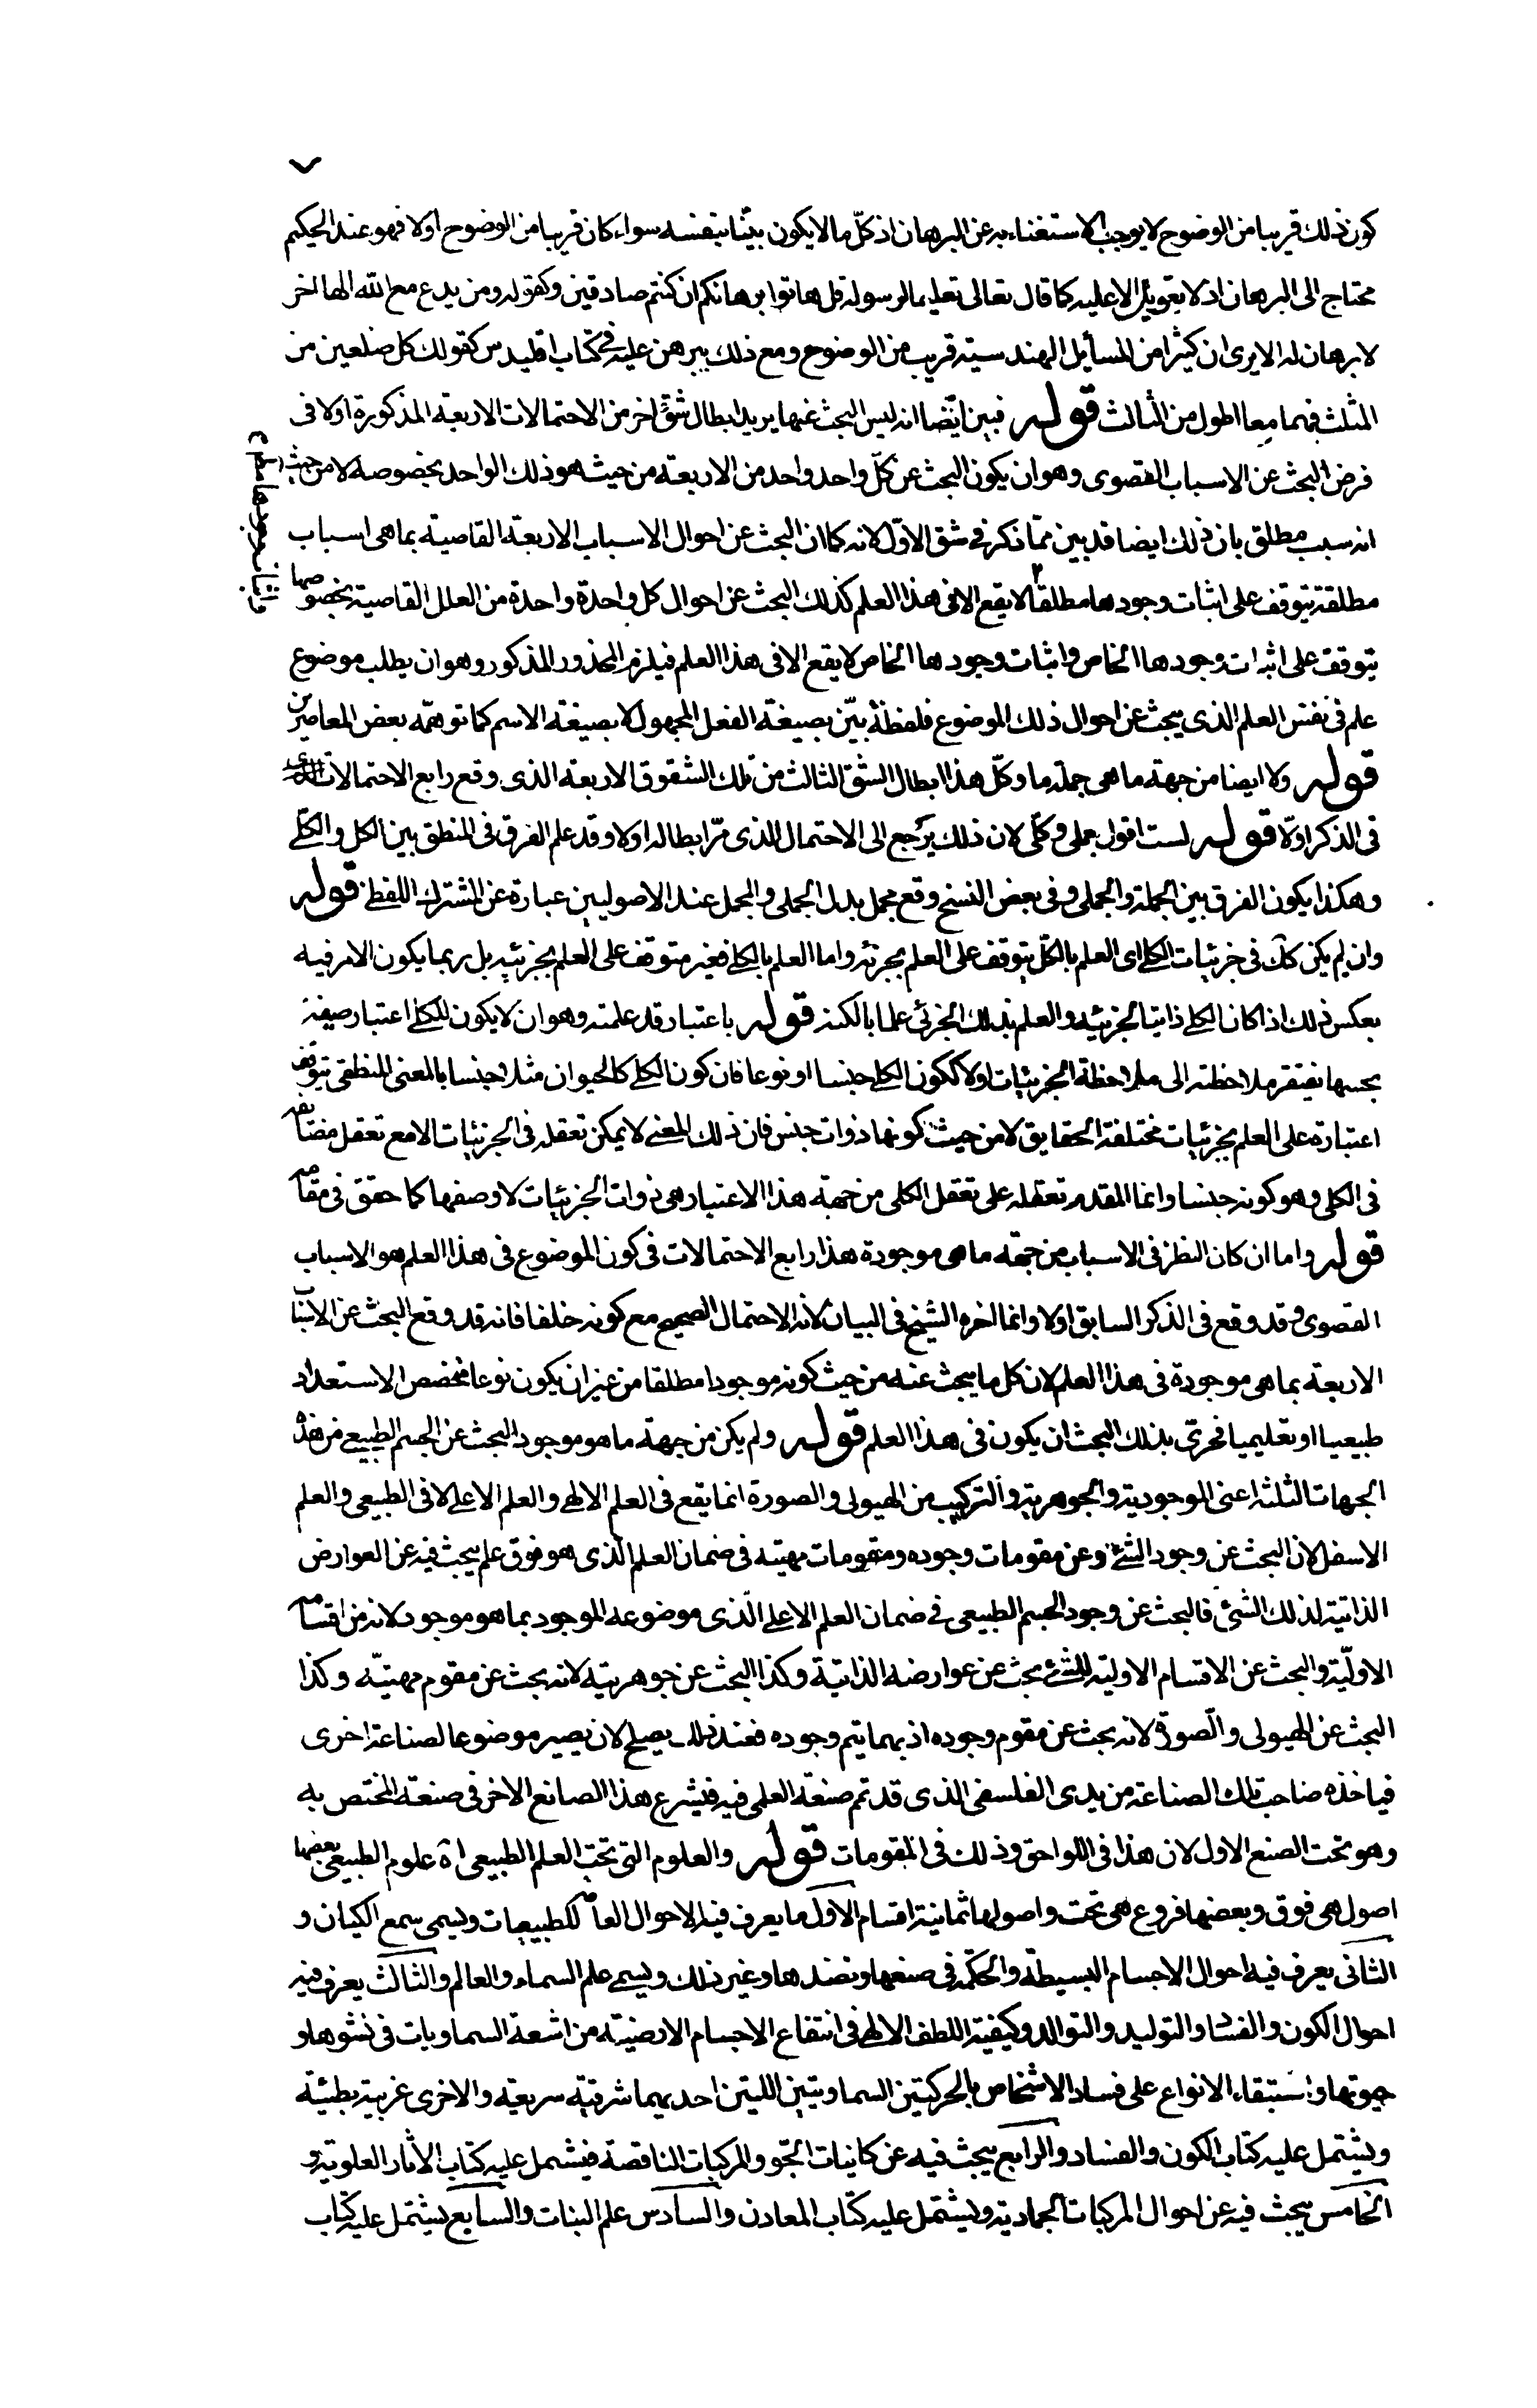 ٧
كون ذلك قريبا من الوضوح لا يوجب الاستغناء به عن البرهان اذ كلّ ما لا يكون بيّنا بنفسه سواء كان قريبا من الوضوح اولا فهو عند الحكيم
محتاج الى البرهان اذ لا تعويل الا عليه كما قال تعالى تعليما لرسوله قل هاتوا برهانكم ان كنتم صادقين وكقوله ومن يدع مع الله الها اخر
لا برهان له الا يرى ان كثيرا من المسائل الهندسيّة قريب من الوضوح ومع ذلك يبرهن عليه فى كتاب اقليدس كقولك كل ضلعين من
المثلث فهما معا اطول من الثالث قوله فبين ايضا انه ليس البحث عنها يريد ابطال شق اخر من الاحتمالات الاربعة المذكورة اولا فى
فرض البحث عن الاسباب القصوى وهو ان يكون البحث عن كلّ واحد واحد من الاربعة من حيث هو ذلك الواحد بخصوصه لا من حيث
انه سبب مطلق بان ذلك ايضا قد بين ممّا ذكر فى شق الاوّل لانه كما ان البحث عن احوال الاسباب الاربعة القاصية بما هى اسباب
مطلقة يتوقف على اثبات وجودها مطلقا ٢ لا يقع الا فى هذا العلم كذلك البحث عن احوال كل واحدة واحدة من العلل القاصية بخصوصها
واثبات وجودها مطلقا
يتوقف على اثبات وجودها الخاص واثبات وجودها الخاص لا يقع الا فى هذا العلم فيلزم المحذور المذكور وهو ان يطلب موضوع
علم فى نفس العلم الذى يبحث عن احوال ذلك الموضوع فلفظة بيّن بصيغة الفعل المجهول لا بصيغة الاسم كما توهمه بعض المعاصرين
قوله ولا ايضا من جهة ما هى جملة ما وكلّ هذا ابطال الشق الثالث من تلك الشقوق الاربعة الذى وقع رابع الاحتمالات
فى الذكر اولا قوله لست اقول جملى وكلّى لان ذلك يرجع الى الاحتمال الذى مرّ ابطاله اولا وقد علم الفرق فى المنطق بين الكل والكلّى
وهكذا يكون الفرق بين الجملة والجملى وفى بعض النسخ وقع مجمل بدل الجملى والمجمل عند الاصوليين عبارة عن المشترك اللفظى قوله
وان لم يكن كك فى جزئيات الكلى اى العلم بالكلّ يتوقف على العلم بجزئه واما العلم بالكلى فغير متوقف على العلم بجزئيه بل ربما يكون الامر فيه
بعكس ذلك اذا كان الكلى ذاتيا لجزئيه والعلم بذلك الجزئى علما بالكنه قوله باعتبار قد علمته وهو ان لا يكون للكلى اعتبار صفة
بحسبها يفتقر ملاحظته الى ملاحظة الجزئيات اولا ككون الكلى جنسا او نوعا فان كون الكلى كالحيوان مثلا جنسا بالمعنى المنطقى يتوقف
اعتباره على العلم بجزئيات مختلفة الحقايق لا من حيث كونها ذوات جنس فان ذلك المعنى لا يمكن تعقله فى الجزئيات الا مع تعقل مضايفه
فى الكلى وهو كونه جنسا وانما المقدم تعقله على تعقل الكلى من جهة هذا الاعتبار هى ذوات الجزئيات لا وصفها كما حقق فى مقامه
قوله واما ان كان النظر فى الاسباب من جهة ما هى موجودة هذا رابع الاحتمالات فى كون الموضوع فى هذا العلم هو الاسباب
القصوى وقد وقع فى الذكر السابق اولا وانما اخره الشيخ فى البيان لانه الاحتمال الصحيح مع كونه خلفا فانه قد وقع البحث عن الاسباب
الاربعة بما هى موجودة فى هذا العلم لان كل ما يبحث عنه من حيث كونه موجودا مطلقا من غير ان يكون نوعا مخصص الاستعداد
طبيعيا او تعليميا فحرىّ بذلك البحث ان يكون فى هذا العلم قوله ولم يكن من جهة ما هو موجود البحث عن الجسم الطبيعى من هذه
الجهات الثلثة اعنى الموجودية والجوهرية والتركيب من الهيولى والصورة انما يقع فى العلم الالهى والعلم الاعلى لا فى الطبيعى والعلم
الاسفل لان البحث عن وجود الشئ وعن مقومات وجوده ومقومات مهيته فى ضمان العلم الذى هو فوق علم يبحث فيه عن العوارض
الذاتية لذلك الشئ فالبحث عن وجود الجسم الطبيعى فى ضمان العلم الاعلى الّذى موضوعه الموجود بما هو موجود لانه من اقسامه
الاوليّة والبحث عن الاقسام الاولية للشئ بحث عن عوارضه الذاتية وكذا البحث عن جوهريته لانه بحث عن مقوم مهيّته وكذا
البحث عن الهيولى والصورة لانه بحث عن مقوم وجوده اذ بهما يتم وجوده فعند ذلك يصلح لان يصير موضوعا لصناعة اخرى
فياخذه صاحب تلك الصناعة من يدى الفلسفى الذى قد تم صنعة العلمى فيه فيشرع هذا الصانع الاخر فى صنعته المختص به
وهو تحت الصنع الاول لان هذا فى اللواحق وذلك فى المقومات قوله والعلوم التى تحت العلم الطبيعى اه علوم الطبيعى بعضها
اصول هى فوق وبعضها فروع هى تحت واصولها ثمانية اقسام الاول ما يعرف فيه الاحوال العامة للطبيعيات ويسمى سمع الكيان و
الثانى يعرف فيه احوال الاجسام البسيطة والحكمة فى صنعها ونضدها وغير ذلك ويسمى علم السماء والعالم والثالث يعرف فيه
احوال الكون والفساد والتوليد والتوالد وكيفية اللطف الالهى فى انتفاع الاجسام الارضية من اشعة السماويات فى نشوها و
حيوتها واستبقاء الانواع على فساد الاشخاص بالحركتين السماويتين اللتين احديهما شرقية سريعة والاخرى غربية بطيئة
ويشتمل عليه كتاب الكون والفساد والرابع يبحث فيه عن كاينات الجو والمركبات الناقصة فيشمل عليه كتاب الاثار العلوية و
الخامس يبحث فيه عن احوال المركبات الجمادية ويشتمل عليه كتاب المعادن والسادس علم النبات والسابع يشتمل عليه كتاب